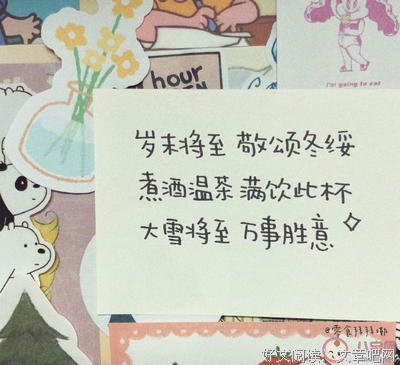 hour
I'm going to eat
岁末将至 敬颂冬绥
煮酒温茶 满饮此杯
大雪将至 万事胜意
@零食拜拜嘟
八宝网
好文阅读 文章吧网